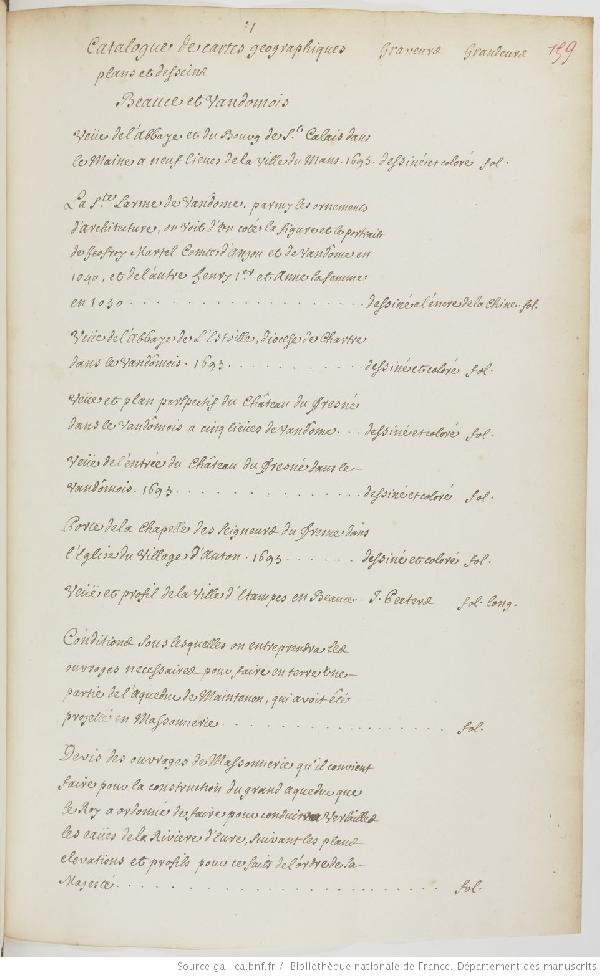 51
Catalogue de cartes geographiques Graveurs Grandeurs 159
plans et desseins
Beauce et Vandomois
Veüe de l'Abbaye et du Bourg de St. Calais dans
le Maine a neuf lieues de la ville du Mans. 1695. dessiné et coloré fol.
La Ste. Larme de Vandome. parmy les ornements
d'architecture, on voit d'un coté la figure et le portrait
de Geofroy Martel Comte d'Anjou et de Vandome en
1040, et de l'autre Henry 1er et Anne sa femme
en 1030 . . . . . dessiné a l'encre de la Chine. fol.
Veüe de l'Abbaye de L'Estoille, diocese de Chartre
dans le Vandômois. 1695 . . . . . dessiné et coloré fol.
Veüe et plan perspectif du Château du Fresné
dans le Vandômois a cinq lieües de Vandôme . . . dessiné et coloré fol.
Veüe de l'entrée du Château du Fresné dans le
Vandômois. 1695 . . . . . dessiné et coloré fol.
Porte de la Chapelle des Seigneurs du Fresne dans
l'Eglise du Village d'Auton. 1695 . . . . . dessiné et coloré fol.
Veüe et profil de la Ville d'Etampes en Beauce. J. Peeters fol. long.
Conditions sous lesquelles on entreprendra les
ouvrages necessaires pour faire en terre une
partie de l'aqueduc de Maintenon, qui avoit été
projetté en Massonnerie . . . . . fol.
Devis des ouvrages de Massonnerie qu'il convient
faire pour la construction du grand aqueduc que
le Roy a ordonné de faire pour conduire a Versailles
les eaües de la Riviere d'Eure, suivant les plans
elevations et profils pour ce faits de l'ordre de sa
Majesté . . . . . fol.
Source gallica.bnf.fr / Bibliothèque nationale de France. Département des manuscrits